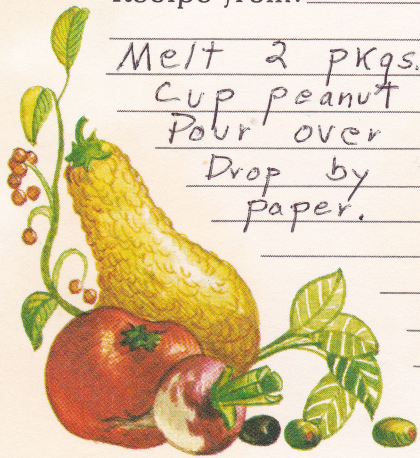 Recipe from:
Melt 2 pkgs.
Cup peanut
Pour over
Drop by
paper.